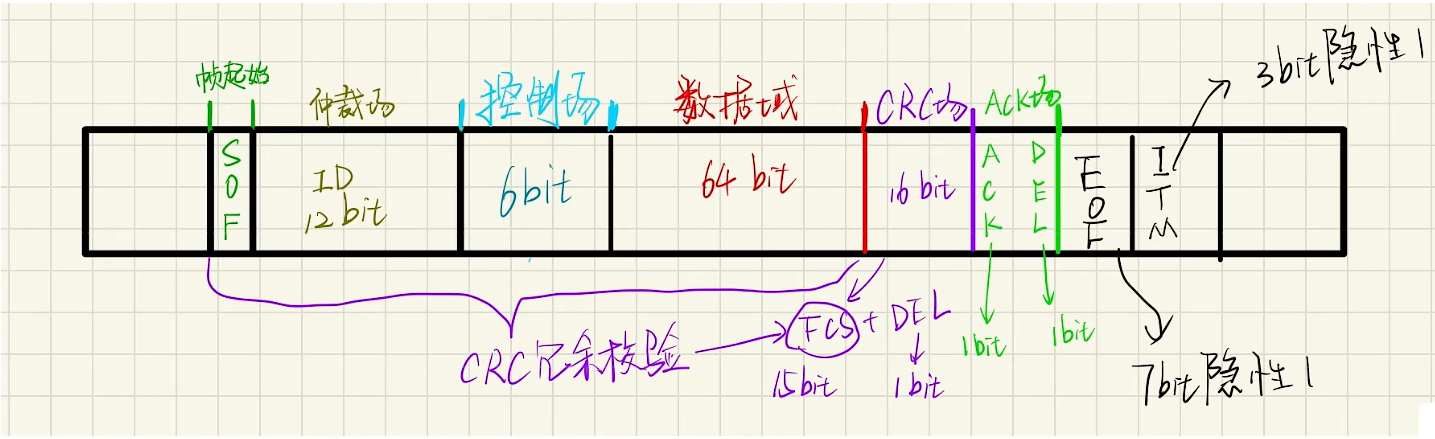 帧起始
仲裁场
控制场
数据域
CRC场
ACK场
3bit隐性1
SOF
ID
12bit
6bit
64 bit
16 bit
ACK
DEL
EOF
ITM
CRC冗余校验
FCS + DEL
15bit
1bit
1bit
1bit
7bit隐性1